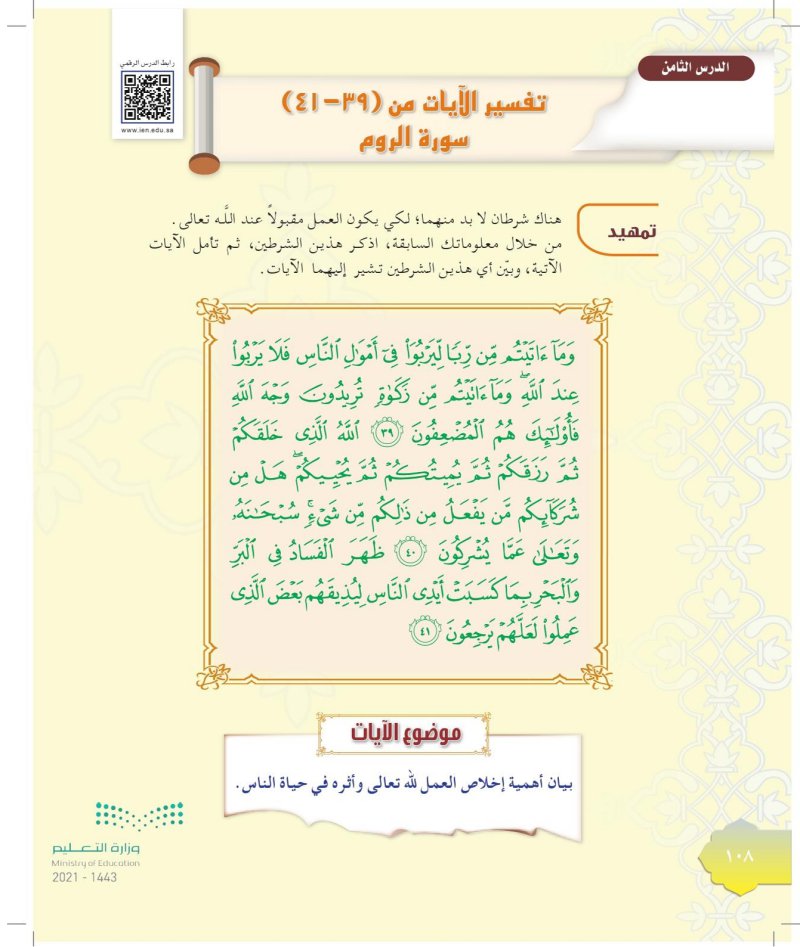 رابط الدرس الرقمي
www.ien.edu.sa
الدرس الثامن
تفسير الآيات من (٣٩-٤١)
سورة الروم
تمهيد
هناك شرطان لا بد منهما؛ لكي يكون العمل مقبولاً عند اللَّه تعالى.
من خلال معلوماتك السابقة، اذكر هذين الشرطين، ثم تأمل الآيات
الآتية، وبيّن أي هذين الشرطين تشير إليهما الآيات.
وَمَآ ءَاتَيْتُم مِّن رِّبًا لِّيَرْبُوَا۟ فِىٓ أَمْوَٰلِ ٱلنَّاسِ فَلَا يَرْبُوا۟
عِندَ ٱللَّهِ ۖ وَمَآ ءَاتَيْتُم مِّن زَكَوٰةٍ تُرِيدُونَ وَجْهَ ٱللَّهِ
فَأُو۟لَـٰٓئِكَ هُمُ ٱلْمُضْعِفُونَ ٣٩ ٱللَّهُ ٱلَّذِى خَلَقَكُمْ
ثُمَّ رَزَقَكُمْ ثُمَّ يُمِيتُكُمْ ثُمَّ يُحْيِيكُمْ ۖ هَلْ مِن
شُرَكَآئِكُم مَّن يَفْعَلُ مِن ذَٰلِكُم مِّن شَىْءٍ ۚ سُبْحَـٰنَهُۥ
وَتَعَـٰلَىٰ عَمَّا يُشْرِكُونَ ٤٠ ظَهَرَ ٱلْفَسَادُ فِى ٱلْبَرِّ
وَٱلْبَحْرِ بِمَا كَسَبَتْ أَيْدِى ٱلنَّاسِ لِيُذِيقَهُم بَعْضَ ٱلَّذِى
عَمِلُوا۟ لَعَلَّهُمْ يَرْجِعُونَ ٤١
موضوع الآيات
بيان أهمية إخلاص العمل لله تعالى وأثره في حياة الناس.
وزارة التعليم
Ministry of Education
2021 - 1443
١٠٨